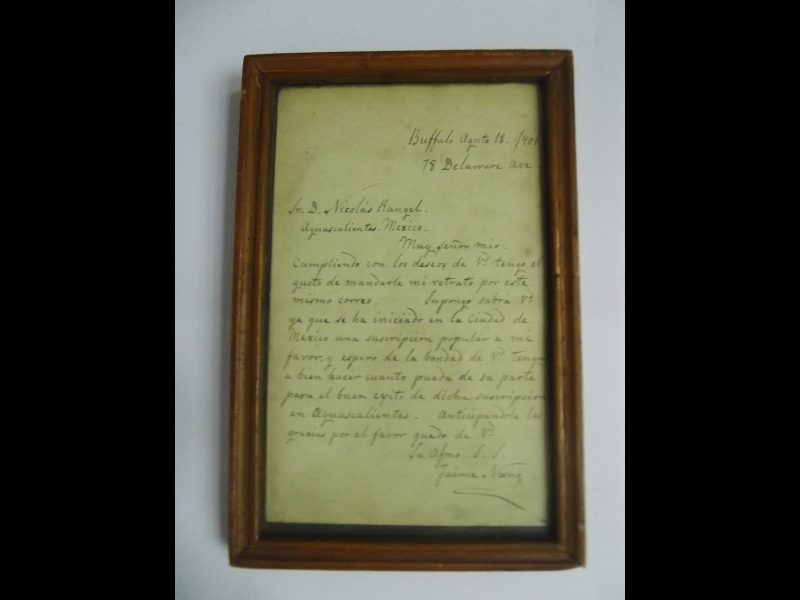 Buffalo Agosto 18 - /901
78 Delaware Ave.
Sr. D. Nicolás Rangel.
Aguascalientes. Mexico.
Muy Señor mio.
Cumpliendo con los deseos de Vd tengo el
gusto de mandarle mi retrato por este
mismo correo. Supongo sabra Vd
ya que se ha iniciado en la Ciudad de
Mexico una suscripcion popular a mi
favor, y espero de la bondad de Vd. tenga
a bien hacer cuanto pueda de su parte
para el buen exito de dicha suscripcion
en Aguascalientes. Anticipandole las
gracias por el favor quedo de Vd
Su Afmo. S. S.
Jaime Nunó